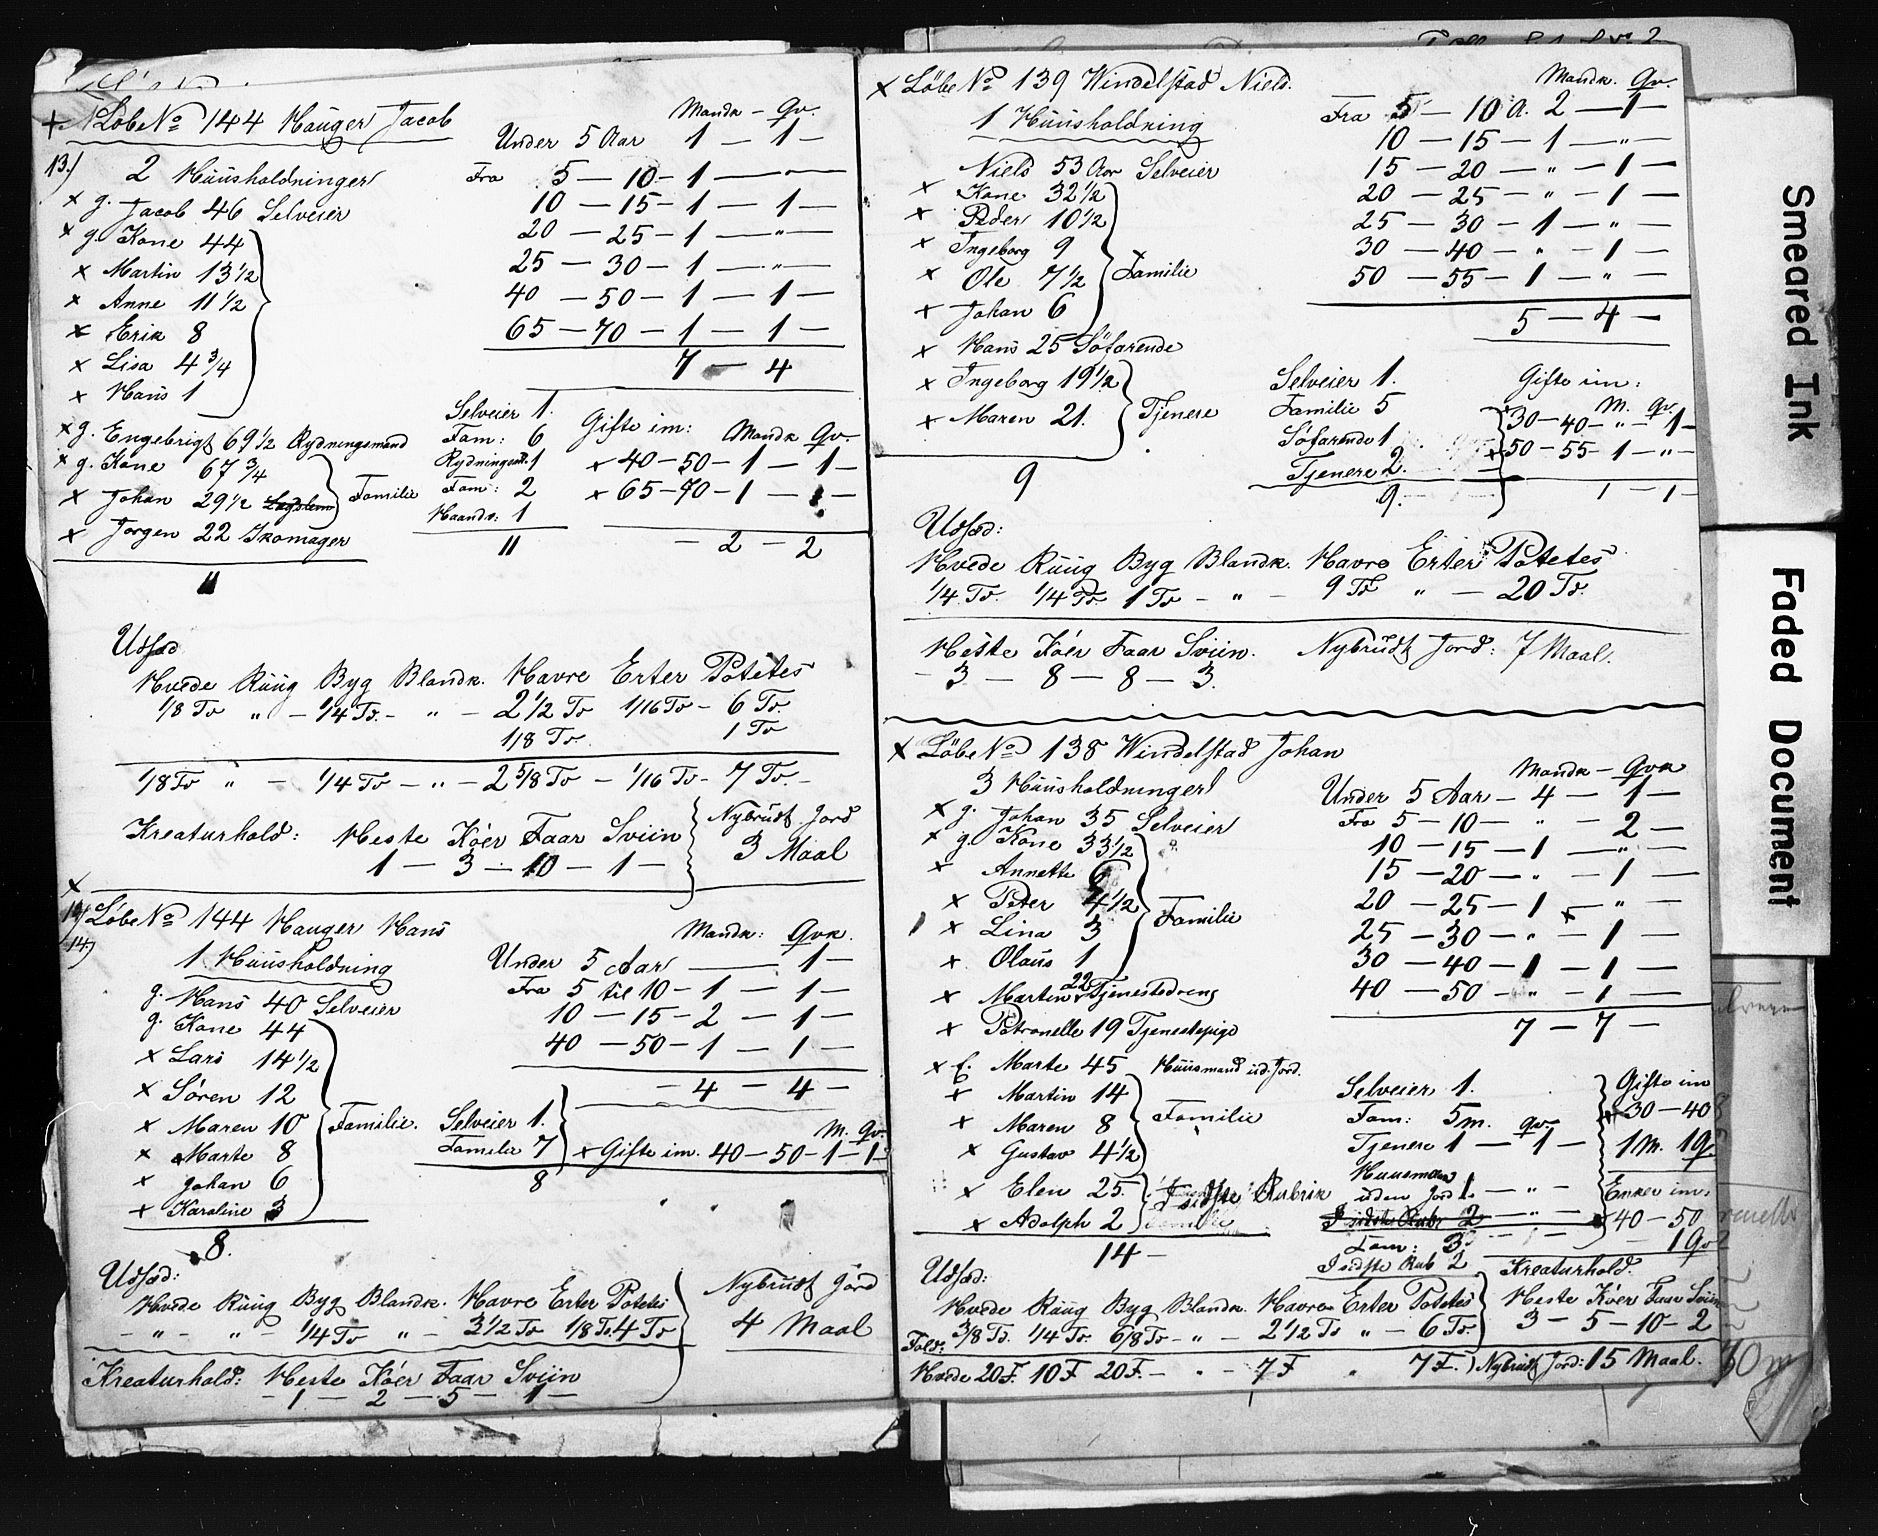 + Löbe No 144 Hauger Jacob
Mandk - Qv.
13) 2 Huusholdninger
Under 5 Aar 1 — 1 —
Fra 5 — 10 — 1 — " —
x g. Jacob 46 Selveier
10 — 15 — 1 — 1 —
x g. Kone 44
20 — 25 — 1 — " —
x Martin 13 1/2
25 — 30 — 1 — " —
x Anne 11 1/2
40 — 50 — 1 — 1 —
x Erik 8
65 — 70 — 1 — 1 —
x Lisa 4 3/4
7 — 4
x Hans 1
x g. Engebrigt 69 1/2 Rydningsmand
x g. Kone 67 3/4
x Johan 29 1/2 Familie
x Jørgen 22 Skomager
11
Selveier 1.
Fam: 6
Rydningsm. 1
Fam: 2
Haandv: 1
11
Gifte im: Mandk Qv.
x 40 — 50 — 1 — 1 —
x 65 — 70 — 1 — 1 —
— 2 — 2
Udsæd
Hvede Ruug Byg Blandk. Havre Erter Potetes
1/8 Tø " — 1/4 Tø. — " — 2 1/2 Tø 1/16 Tø — 6 Tø.
1/8 Tø. 1 Tø
1/8 Tø " — 1/4 Tø — " — 2 5/8 Tø — 1/16 Tø — 7 Tø. —
Kreaturhold: Heste Köer Faar Sviin
1 — 3 — 10 — 1 —
Nybrudt Jord
3 Maal
x
14) Löbe No 144 Hauger Hans
Mandk: Qvk.
1 Huusholdning
Under 5 Aar — 1 —
g. Hans 40 Selveier
Fra 5 til 10 — 1 — 1 —
g. Kone 44
10 — 15 — 2 — 1 —
x Lars 14 1/2
40 — 50 — 1 — 1 —
x Sören 12
— 4 — 4 —
x Maren 10 Familie.
x Marte 8
x Johan 6
x Karoline 3
8.
Selveier 1.
Familie 7
8
M. Qv.
x Gifte im. 40 — 50 — 1 — 1
Udsæd:
Hvede Ruug Byg Blandk. Havre Erter Potetes
— " — " — 1/4 Tø " — 3 1/2 Tø 1/8 Tø. 4 Tø
Nybrudt Jord
4 Maal
Kreaturhold: Heste Köer Faar Sviin
— 1 — 2 — 5 — 1 —
x Löbe No 139 Windelstad Niels.
Mandk. Qv.
1 Huusholdning
Fra 5 — 10 A. 2 — 1 —
10 — 15 — 1 — " —
Niels 53 Aar Selveier
15 — 20 — " — 1 —
x Kone 32 1/2
20 — 25 — " — 1 —
x Peder 10 1/2
25 — 30 — 1 — " —
x Ingeborg 9
30 — 40 — " — 1 —
x Ole 7 1/2 Familie
50 — 55 — 1 — " —
x Johan 6
5 — 4 —
x Hans 25 Söfarende
x Ingeborg 19 1/2
x Maren 21. Tjenere
9
Selveier 1.
Familie 5
Söfarende 1
Tjenere 2.
9.
Gifte im:
M. Qv.
30 — 40 — " — 1 —
x 50 — 55 — 1 — " —
1 — 1 —
Udsæd:
Hvede Ruug Byg Blandk. Havre Erter Potetes
1/4 Tø. 1/4 Tø. 1 Tø — " — 9 Tø " — 20 Tø.
Heste Köer Faar Sviin. Nybrudt Jord: 7 Maal.
— 3 — 8 — 8 — 3.
x Löbe No 138 Windelstad Johan
Mandk — Qvk
3 Huusholdninger
Under 5 Aar — 4 — 1 —
x g. Johan 35 Selveier
Fra 5 — 10 — " — 2 —
x g. Kone 33 1/2
10 — 15 — 1 — " —
x Annette 6
15 — 20 — " — 1 —
x Peter 4 1/2 Familie
20 — 25 — 1 — " —
x Lina 3
25 — 30 — " — 1 —
x Olaus 1
30 — 40 — 1 — 1 —
x Martin 22 Tjenestedreng
40 — 50 — " — 1 —
x Petronelle 19 Tjenestepige
7 — 7 —
x E. Marte 45 Huusmand ud. Jord.
x Martin 14
x Maren 8 Familie
x Gustav 4 1/2
x Elen 25. sidste Rubrik
x Adolph 2
14 —
Selveier 1.
Fam: 5 m. qv.
Tjenere 1 — 1 —
Huusmand
uden Jord 1 — " —
I sidste Rubr 2 — " —
Fam: 3
I sidste Rub 2
Gifte im
x 30 — 40
1 M. 1 Q
Enker im:
x 40 — 50
— 1 Qv
Udsæd:
Hvede Ruug Byg Blandk. Havre Erter Potetes
3/8 Tø. 1/4 Tø. 6/8 Tø — " — 2 1/2 Tø " — 6 Tø.
Kreaturhold.
Heste Köer Faar Sviin
3 — 5 — 10 — 2
Fold:
Hvede 20 F. 10 F. 20 F. — " — 7 F " 7 F. Nybrudt Jord: 15 Maal.
Smeared Ink
Faded Document